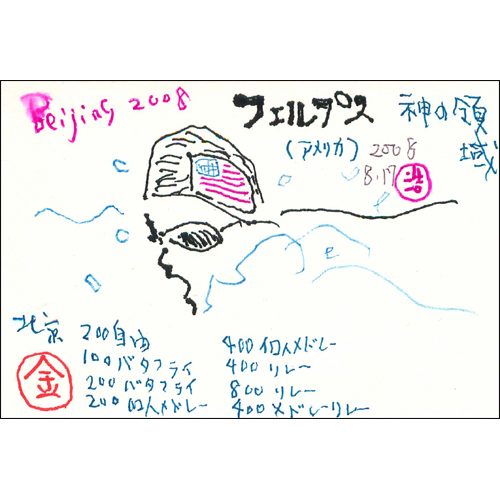 Beijing 2008
フェルプス
神の領域
(アメリカ)
2008
8.17
北京
金
200自由
100バタフライ
200バタフライ
200個人メドレー
400個人メドレー
400リレー
800リレー
400メドレーリレー